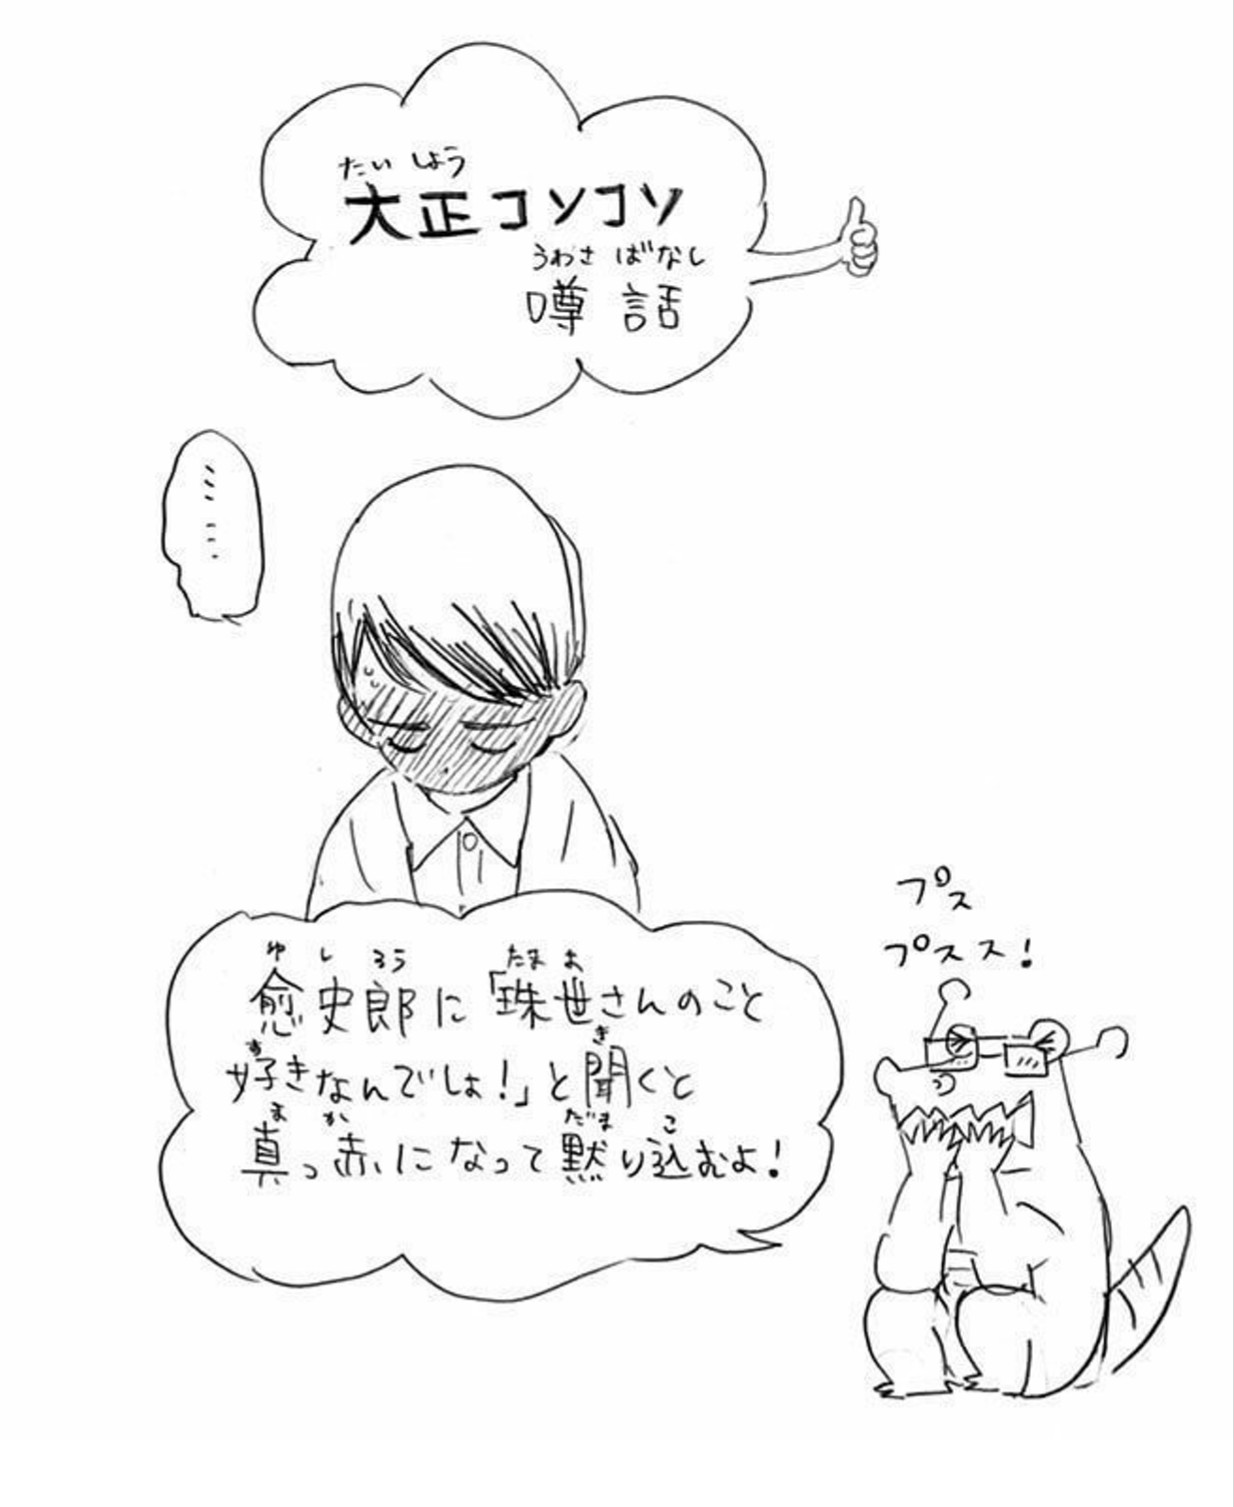 たいしょう
大正コソコソ
うわさばなし
噂話
……
ゆしろう たまよ
愈史郎に「珠世さんのこと
す き
好きなんでしょ！」と聞くと
まか だま こ
真っ赤になって黙り込むよ！
プス
プスス！